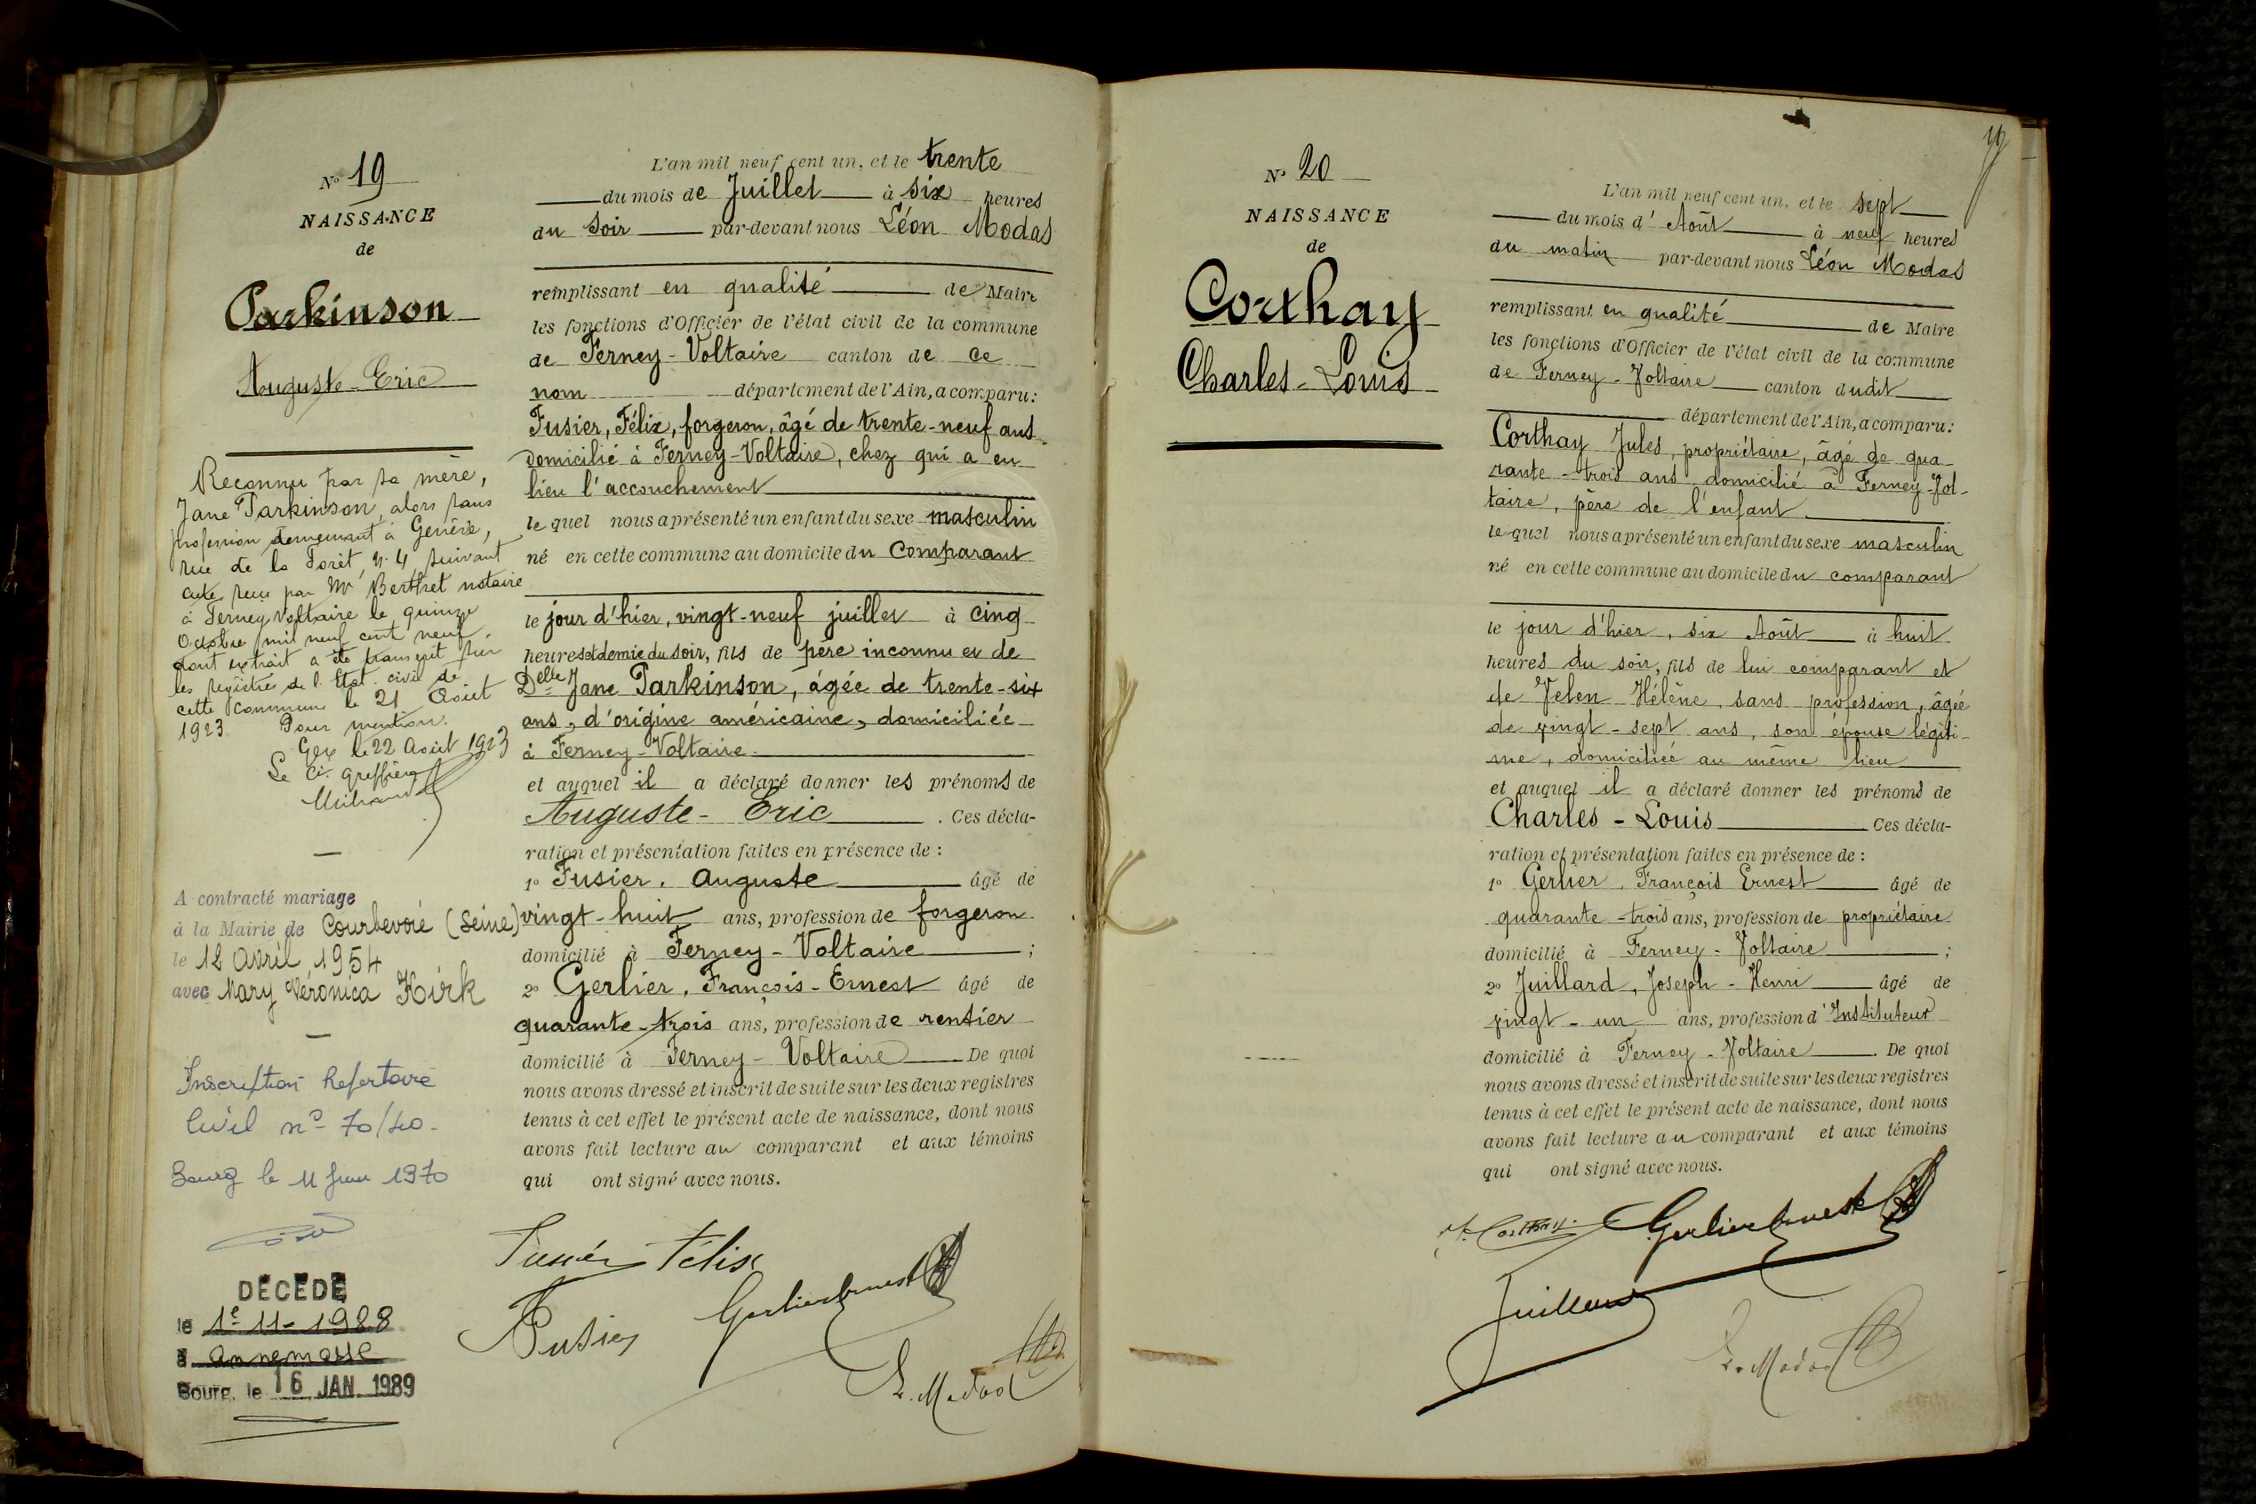 N° 19
NAISSANCE
de
Parkinson
Auguste-Eric
Reconnu par sa mère,
Jane Parkinson, alors sans
profession demeurant à Genève,
rue de la Forêt, n° 4, suivant
acte reçu par Me Berthet notaire
à Ferney Voltaire le quinze
Octobre mil neuf cent neuf
dont extrait a été transcrit sur
les registres de l'Etat civil de
cette commune le 21 Août
1923. Pour mention.
Gex le 22 Août 1923
Le Cis greffier
A contracté mariage
à la Mairie de Courbevoie (Seine)
le 12 Avril 1954
avec Mary Véronica Kirk
Inscription Repertoire
Civil n° 70/40-
Bourg le 11 Juin 1970
DÉCÉDÉ
le 1e 11-1988
à annemasse
Bourg, le 16 JAN. 1989
L'an mil neuf cent un, et le trente
du mois de Juillet à six heures
du soir par-devant nous Léon Modas
remplissant en qualité de Maire
les fonctions d'Officier de l'état civil de la commune
de Ferney-Voltaire canton de ce
nom département de l'Ain, a comparu:
Fusier, Félix, forgeron, âgé de trente-neuf ans
domicilié à Ferney-Voltaire, chez qui a eu
lieu l'accouchement
le quel nous a présenté un enfant du sexe masculin
né en cette commune au domicile du Comparant
le jour d'hier, vingt-neuf juillet à cinq
heures et demie du soir, fils de père inconnu et de
Delle Jane Parkinson, âgée de trente-six
ans, d'origine américaine, domiciliée
à Ferney-Voltaire
et auquel il a déclaré donner les prénoms de
Auguste-Eric. Ces décla-
ration et présentation faites en présence de :
1° Fusier, Auguste âgé de
vingt-huit ans, profession de forgeron
domicilié à Ferney-Voltaire ;
2° Gerlier, François-Ernest âgé de
quarante-trois ans, profession de rentier
domicilié à Ferney-Voltaire De quoi
nous avons dressé et inscrit de suite sur les deux registres
tenus à cet effet le présent acte de naissance, dont nous
avons fait lecture au comparant et aux témoins
qui ont signé avec nous.
Fusier Félix
Fusier
Gerlier Ernest
L. Modas
N° 20
NAISSANCE
de
Corthay
Charles-Louis
L'an mil neuf cent un, et le sept
du mois d'Août à neuf heures
du matin par-devant nous Léon Modas
remplissant en qualité de Maire
les fonctions d'Officier de l'état civil de la commune
de Ferney-Voltaire canton dudit
département de l'Ain, a comparu:
Corthay Jules, propriétaire, âgé de qua-
rante-trois ans domicilié à Ferney-Vol-
taire, père de l'enfant
le quel nous a présenté un enfant du sexe masculin
né en cette commune au domicile du comparant
le jour d'hier, six Août à huit
heures du soir, fils de lui comparant et
de Velen Hélène, sans profession, âgée
de vingt-sept ans, son épouse légiti-
me, domiciliée au même lieu
et auquel il a déclaré donner les prénoms de
Charles-Louis Ces décla-
ration et présentation faites en présence de :
1° Gerlier, François Ernest âgé de
quarante-trois ans, profession de propriétaire
domicilié à Ferney-Voltaire ;
2° Juillard, Joseph-Henri âgé de
vingt-un ans, profession d'Instituteur
domicilié à Ferney-Voltaire. De quoi
nous avons dressé et inscrit de suite sur les deux registres
tenus à cet effet le présent acte de naissance, dont nous
avons fait lecture au comparant et aux témoins
qui ont signé avec nous.
J. Corthay
Gerlier Ernest
Juillard
L. Modas